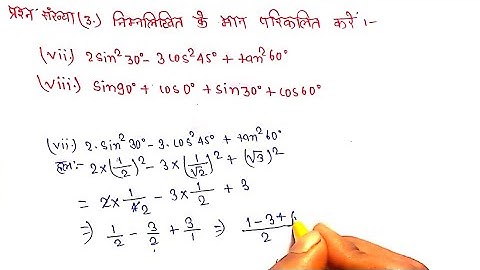 प्रश्न संख्या (3.) निम्नलिखित के मान परिकलित करें :-
(vii) 2sin²30° - 3cos²45° + tan²60°
(viii) sin90° + cos0° + sin30° + cos60°
(vii) 2.sin²30° - 3.cos²45° + tan²60°
हल:- 2×(1/2)² - 3×(1/√2)² + (√3)²
= 2×1/42 - 3×1/2 + 3
⇒ 1/2 - 3/2 + 3/1 ⇒ 1-3+/2